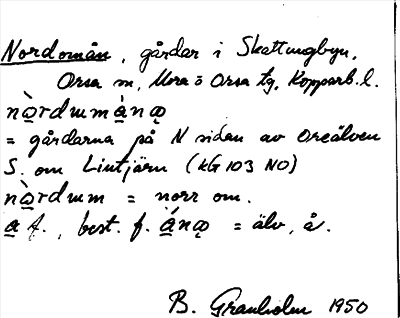 Nordomån, gårdar i Skattungbyn,
Orsa sn, Mora o Orsa tg, Kopparb. l.
nò̱rdumà̱nǫ
= gårdarna på N sidan av Oreälven
S. om Lintjärn (KG 103 NO)
nò̱rdum = norr om.
a̱ f., best. f. á̱nǫ = älv, å.
B. Granholm 1950